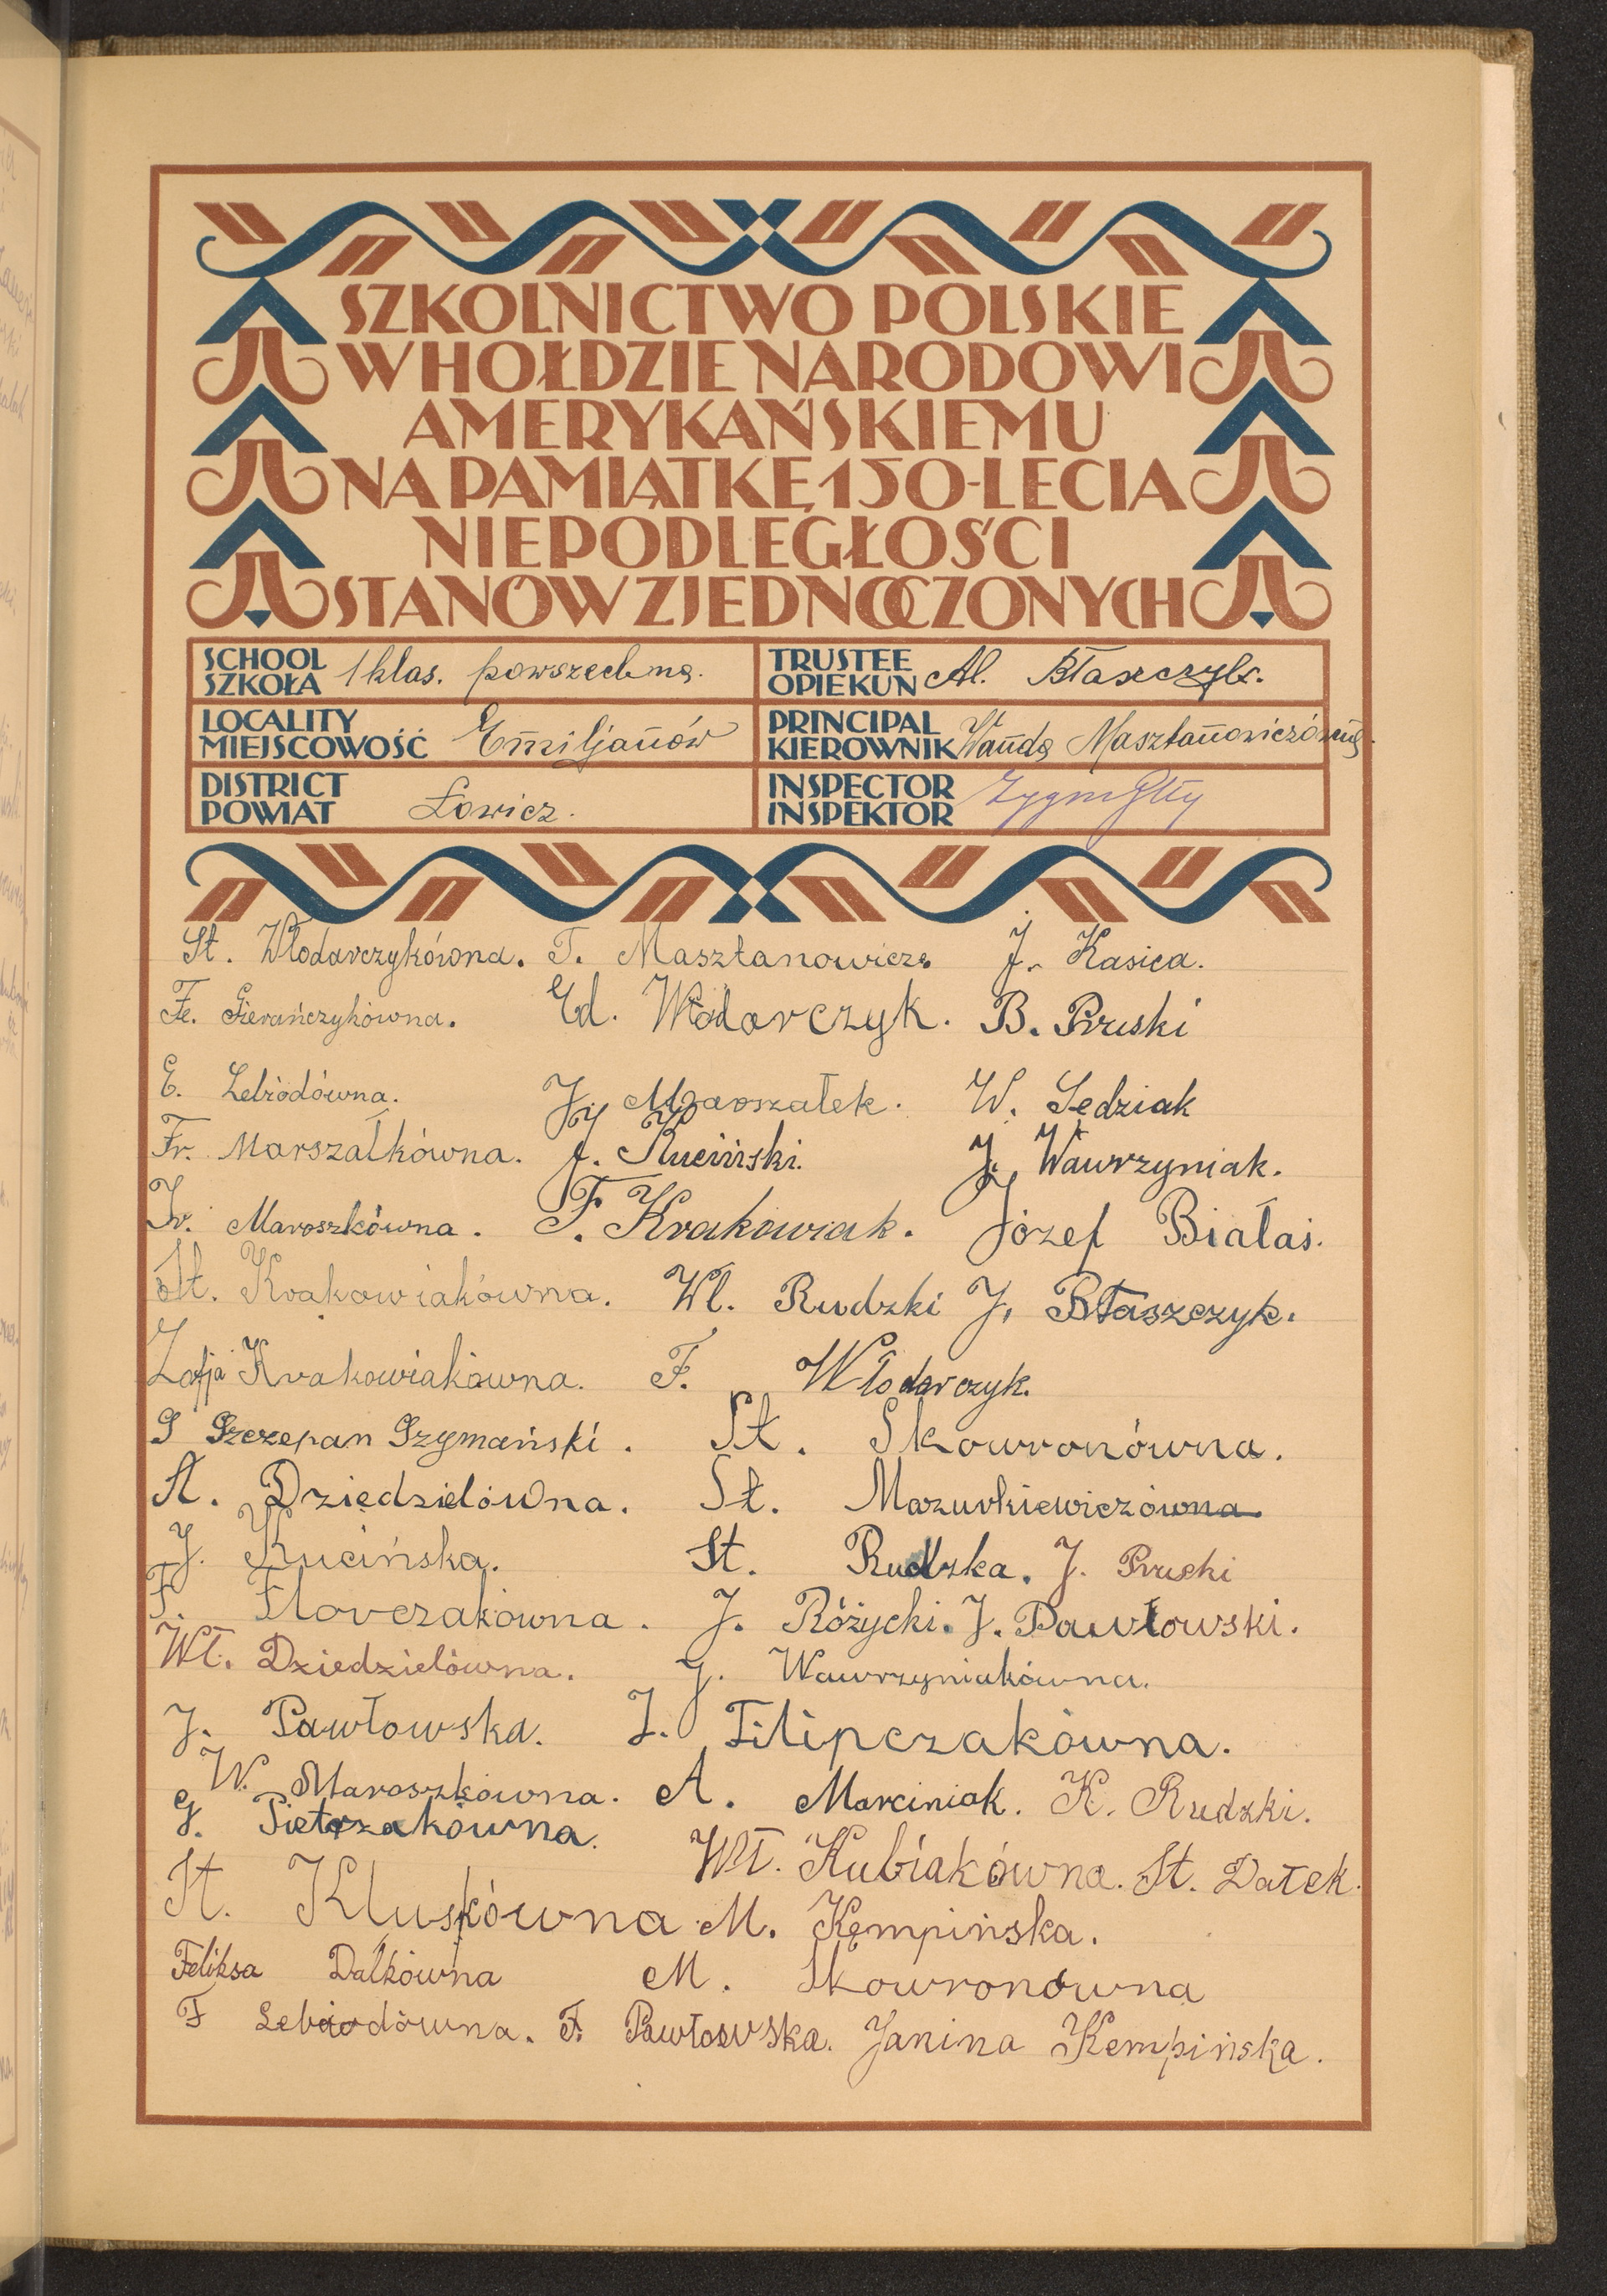 SZKOLNICTWO POLSKIE
W HOŁDZIE NARODOWI
AMERYKAŃSKIEMU
NA PAMIĄTKĘ 150-LECIA
NIEPODLEGŁOŚCI
STANÓW ZJEDNOCZONYCH
SCHOOL
SZKOŁA 1 klas. powszechna.
TRUSTEE
OPIEKUN Al. Błaszczyk.
LOCALITY
MIEJSCOWOŚĆ Emiljanów
PRINCIPAL
KIEROWNIK Wanda Masztanowiczówna.
DISTRICT
POWIAT Łowicz.
INSPECTOR
INSPEKTOR
St. Włodarczykówna. T. Masztanowicz. J. Kasica.
Fe. Gierańczykówna. Ed. Włodarczyk. B. Pruski
E. Lebiodówna. J. Maroszałek. W. Sędziak
Fr. Marszałkówna. J. Kuciński. J. Wawrzyniak.
Ir. Maroszkówna. F. Krakowiak. Józef Białas.
St. Krakowiakówna. Wł. Rudzki J. Błaszczyk.
Zofja Krakowiakówna. F. Włodarczyk.
S Szczepan Szymański. St. Skowronówna.
A. Dziędzielówna. St. Mazurkiewiczówna.
J. Kucińska. St. Rudzka. J. Pruski
F. Florczakówna. J. Różycki. J. Pawłowski.
Wł. Dziedzielówna. J. Wawrzyniakówna.
J. Pawłowska. J. Filipczakówna.
W. Maroszkówna. A. Marciniak. K. Rudzki.
G. Pietrzakówna. Wł. Kubiakówna. St. Datek.
St. Kluskówna M. Kempińska.
Feliksa Datkówna M. Skowronówna
F Lebiodówna. F. Pawłowska. Janina Kempińska.